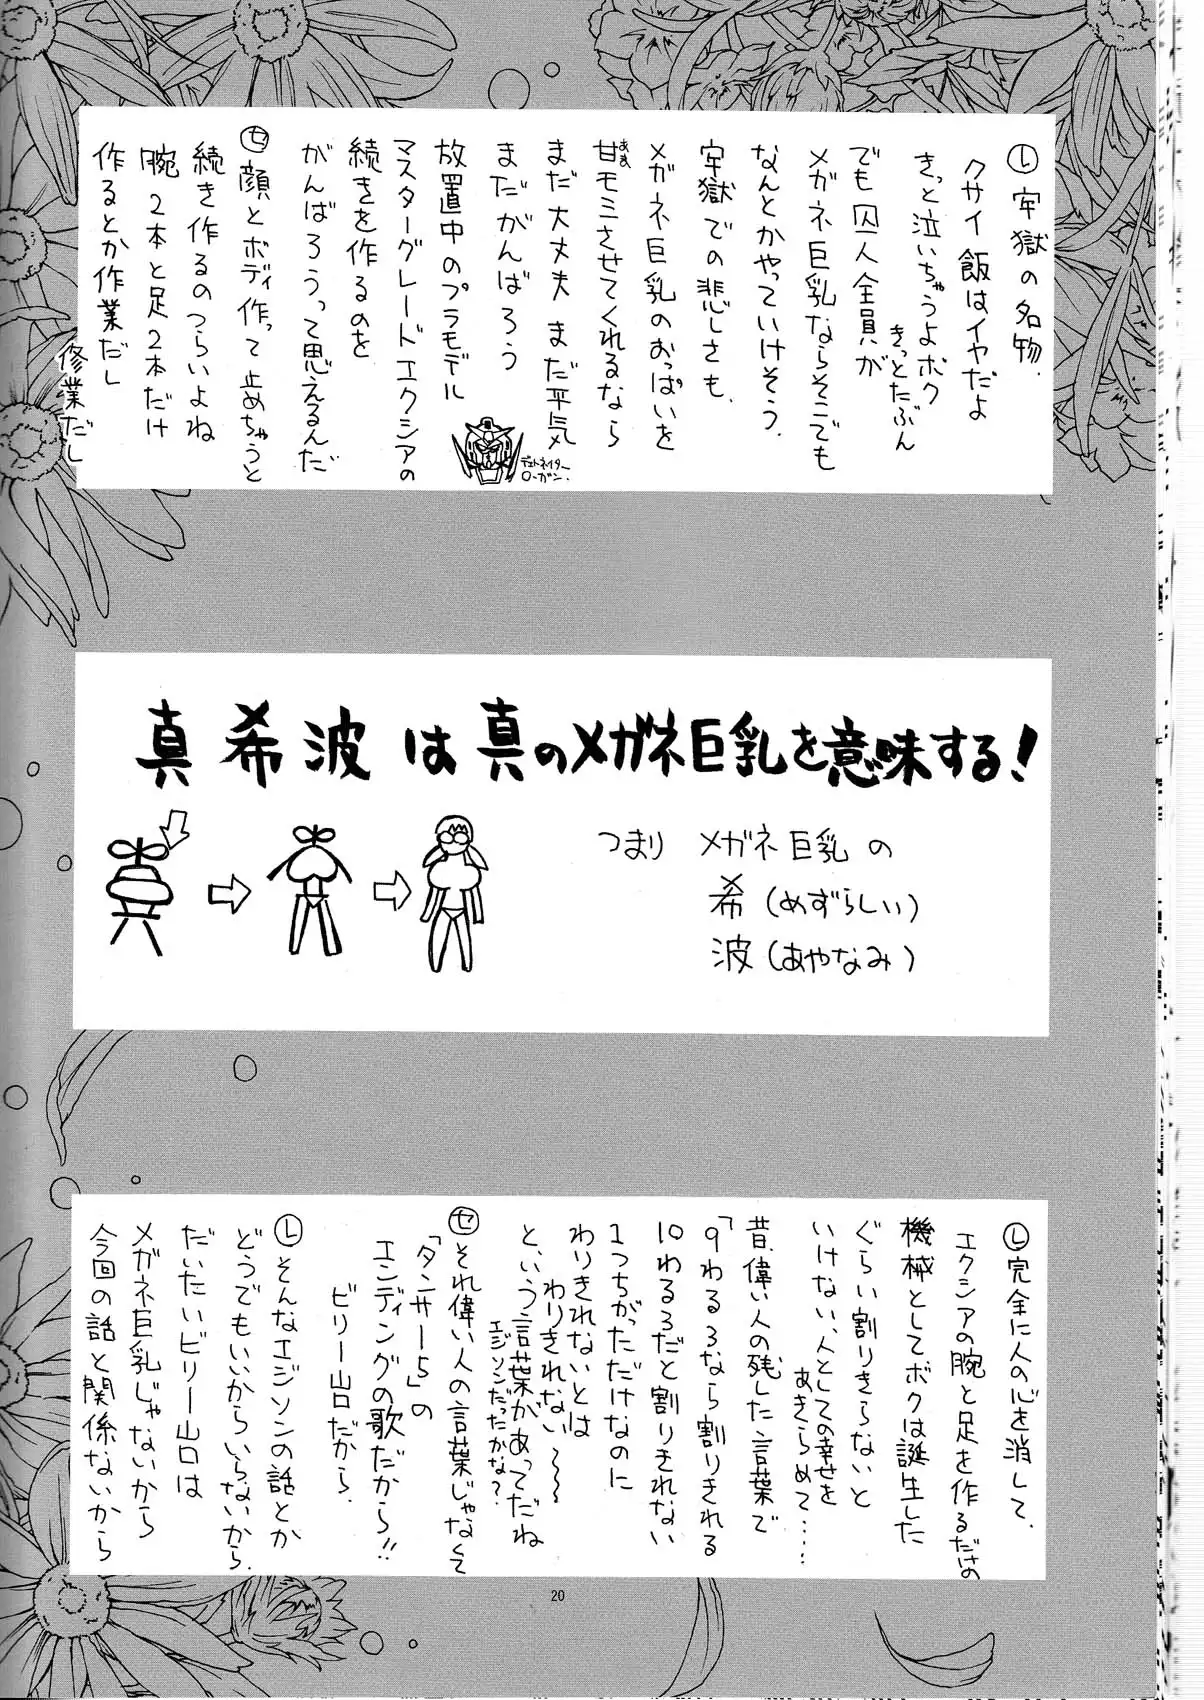 ㋹牢獄の名物、
クサイ飯はイヤだよ
きっと泣いちゃうよボク
きっとたぶん
でも囚人全員が
メガネ巨乳ならそこでも
なんとかやっていけそう、
牢獄での悲しさも、
メガネ巨乳のおっぱいを
甘モミさせてくれるなら
あま
まだ大丈夫まだ平気
まだがんばろう
放置中のプラモデル
マスターグレードエクシアの
続きを作るのを
がんばろうって思えるんだ
デュトネイター
ローガン.
㋝顔とボディ作って止めちゃうと
続き作るのつらいよね
腕2本と足2本だけ
作るとか作業だし
修業だし
真希波は真のメガネ巨乳を意味する!
つまり メガネ巨乳の
希(めずらしい)
波(あやなみ)
㋹完全に人の心を消して、
エクシアの腕と足を作るだけの
機械としてボクは誕生した
ぐらい割りきらないと
いけない、人としての幸せを
あきらめて……
昔、偉い人の残した言葉で
「9わる3なら割りきれる
10わる3だと割りきれない
1つちがっただけなのに
わりきれないとは
わりきれない〜〜
と、いう言葉があってだね
エジソンだったかな?
㋝それ偉い人の言葉じゃなくて
「タンサー5」の
エンディングの歌だから!!
ビリー山口だから、
㋹そんなエジソンの話とか
どうでもいいからいらないから、
だいたいビリー山口は
メガネ巨乳じゃないから
今回の話と関係ないから
20